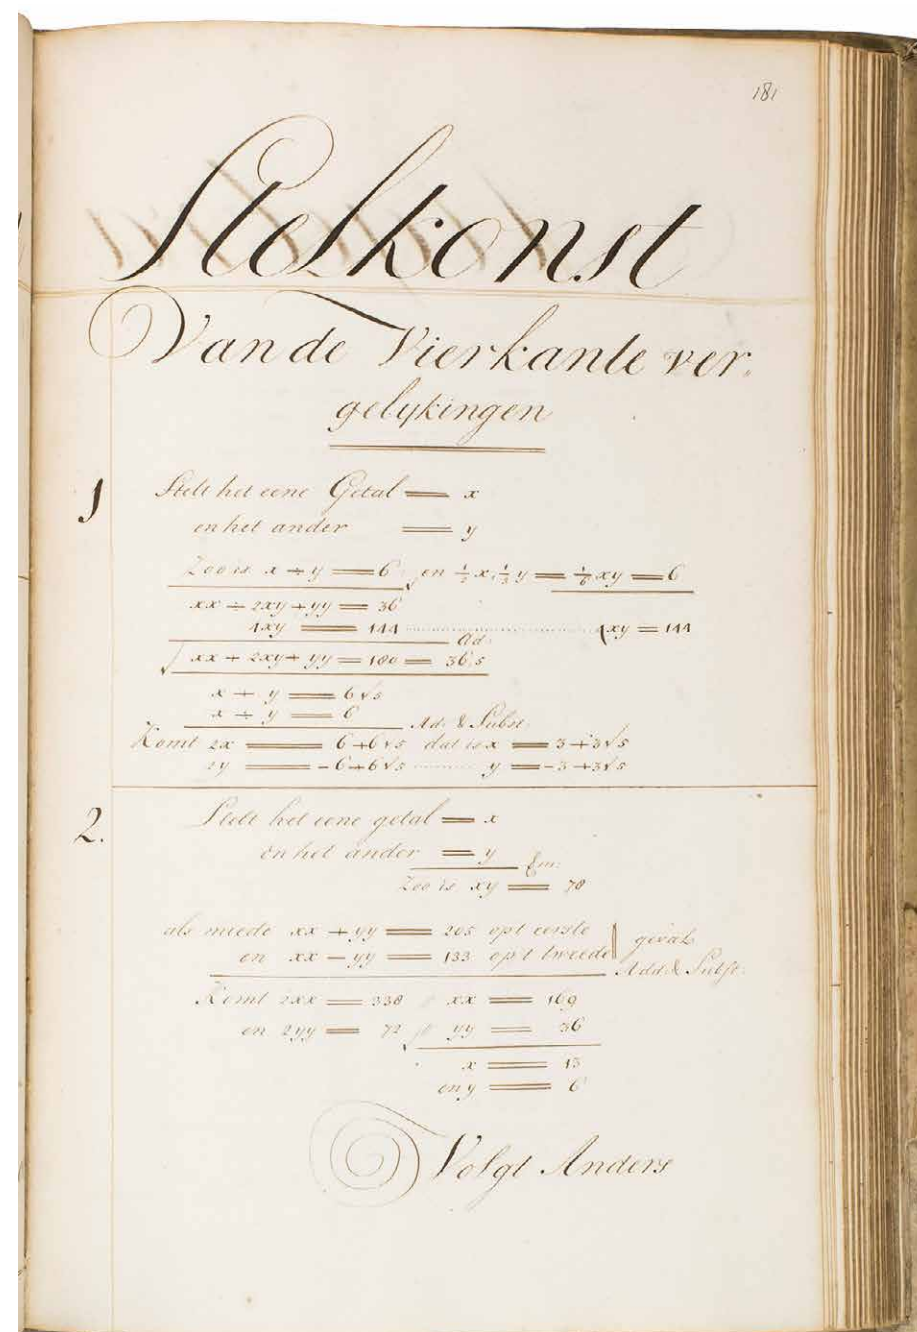 181
Stelkonst
Van de Vierkante ver-
gelykingen
1 Stelt het eene Getal = x
en het ander = y
Zoo is x ÷ y = 6 √ en ½x, ⅓y = ⅙xy = 6
xx ÷ 2xy + yy = 36
4xy = 144 ........ 4xy = 144
Ad.
√ xx + 2xy + yy = 180 = 36,5
x + y = 6√5
x ÷ y = 6
Ad. & Subst.
Komt 2x = 6+6√5 dat is x = 3+3√5
2y = -6+6√5 ........ y = -3+3√5
2. Stelt het eene getal = x
en het ander = y
Em.
Zoo is xy = 78
als meede xx + yy = 205 op't eerste
en xx - yy = 133 op't tweede } geval
Add. & Subst.
Komt 2xx = 338 xx = 169
en 2yy = 72 √ yy = 36
x = 13
en y = 6
Volgt Anders